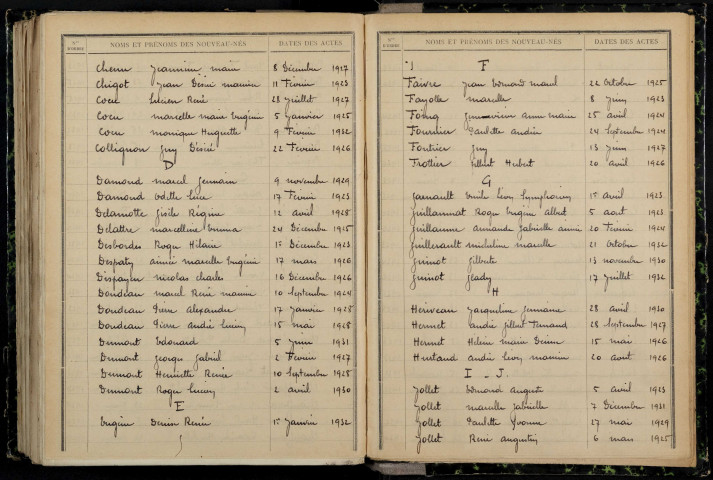 Nos D'ORDRE NOMS ET PRÉNOMS DES NOUVEAU-NÉS DATES DES ACTES
Cherre Jeannine marie 8 Décembre 1927
Chigot Jean Désiré maurice 11 Février 1923
Cocu Lucien René 28 Juillet 1927
Cocu marcelle marie Eugénie 5 Janvier 1925
Cocu monique Huguette 9 Février 1932
Collignon Guy Désiré 22 Février 1926
D
Damond marcel Germain 9 novembre 1929
Damond Odette Luce 17 Février 1923
Delamotte Gisèle Régine 12 avril 1928
Delattre marcelline Emma 24 Décembre 1925
Desbordes Roger Hilaire 1er Décembre 1923
Despaty aimée marcelle Eugénie 17 mars 1926
Dispayen nicolas Charles 16 Décembre 1926
Doudeau marcel René maurice 10 Septembre 1924
Doudeau Pierre alexandre 17 Janvier 1928
Doudeau Pierre andré Lucien 15 mai 1928
Dumont Edouard 5 Juin 1931
Dumont Georges Gabriel 2 Février 1927
Dumont Henriette Renée 10 Septembre 1925
Dumont Roger Lucien 2 avril 1930
E
Eugène Denise Renée 1er Janvier 1932
Nos D'ORDRE NOMS ET PRÉNOMS DES NOUVEAU-NÉS DATES DES ACTES
F
Faivre Jean Edmond marcel 22 Octobre 1925
Fayolle marcelle 8 Juin 1923
Foing Geneviève anne marie 25 avril 1924
Fournier Paulette andrée 24 Septembre 1924
Foutrier Guy 13 Juin 1927
Frottier Gilbert Hubert 20 avril 1926
G
Garnault Emile Léon Symphorien 1er avril 1923
Guillaumat Roger Eugène albert 5 aout 1923
Guillaume armande Gabrielle aimée 20 Février 1924
Guillerault micheline marcelle 21 Octobre 1932
Guinot Gilberte 13 novembre 1930
Guinot Glady 17 Juillet 1932
H
Herveau Jacqueline Germaine 28 avril 1930
Hernet andré Gilbert Fernand 28 Septembre 1927
Hernet Hélène marie Denise 15 mai 1926
Hurtaud andré Léon maurice 20 aout 1926
I - J
Jollet Edmond auguste 5 avril 1923
Jollet marcelle Gabrielle 7 Décembre 1931
Jollet Paulette Yvonne 27 mai 1929
Jollet René augustin 6 mars 1925